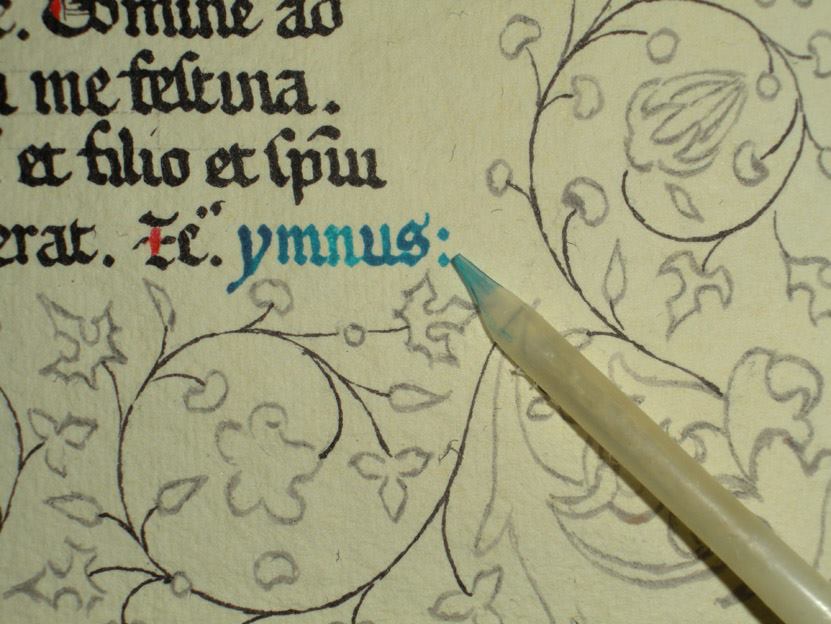 e. Domine ad
me festina.
et filio et sp̄ui
erat. Te͞c̈. ymnus: